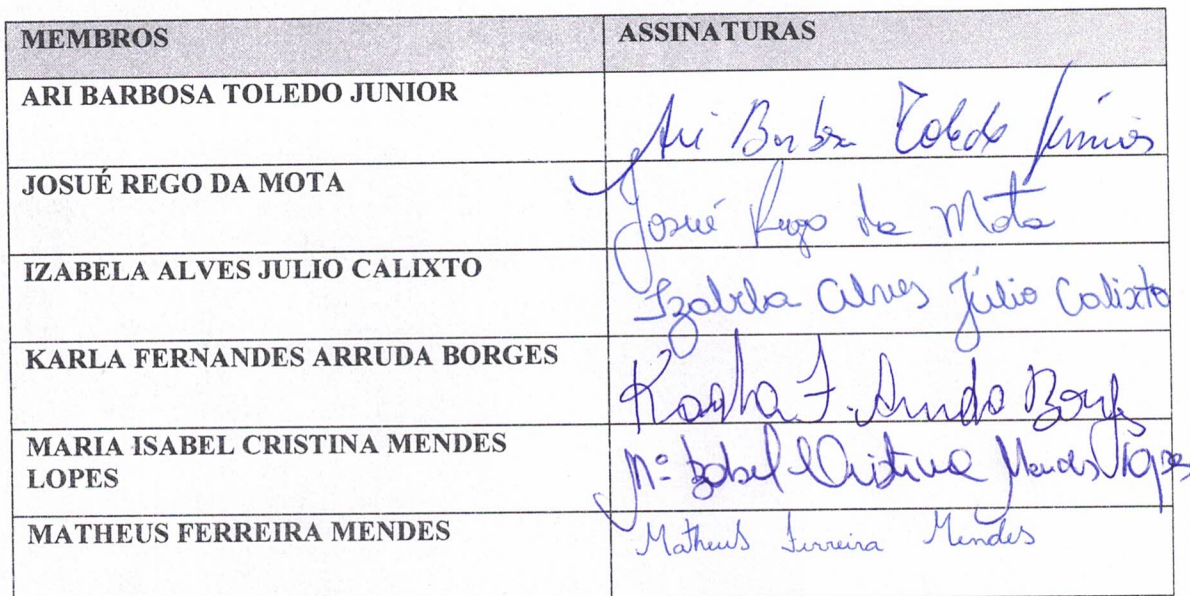 MEMBROS ASSINATURAS
ARI BARBOSA TOLEDO JUNIOR
Ari Barbosa Toledo Júnior
JOSUÉ REGO DA MOTA
Josué Rego da Mota
IZABELA ALVES JULIO CALIXTO
Izabela Alves Júlio Calixto
KARLA FERNANDES ARRUDA BORGES
Karla F. Arruda Borges
MARIA ISABEL CRISTINA MENDES
LOPES
Mª Izabel Cristina Mendes Lopes
MATHEUS FERREIRA MENDES
Matheus Ferreira Mendes